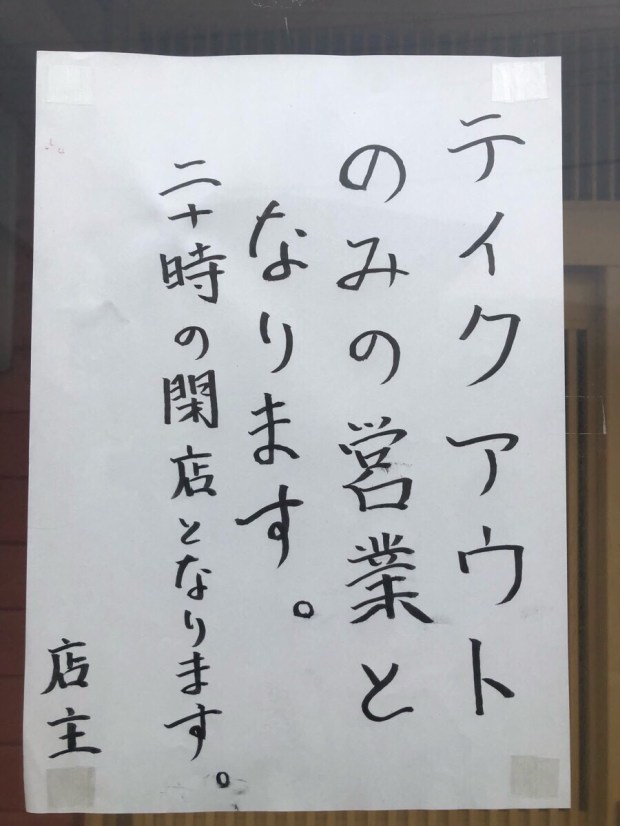 テイクアウト
のみの営業と
なります。
二十時の閉店となります。
店主